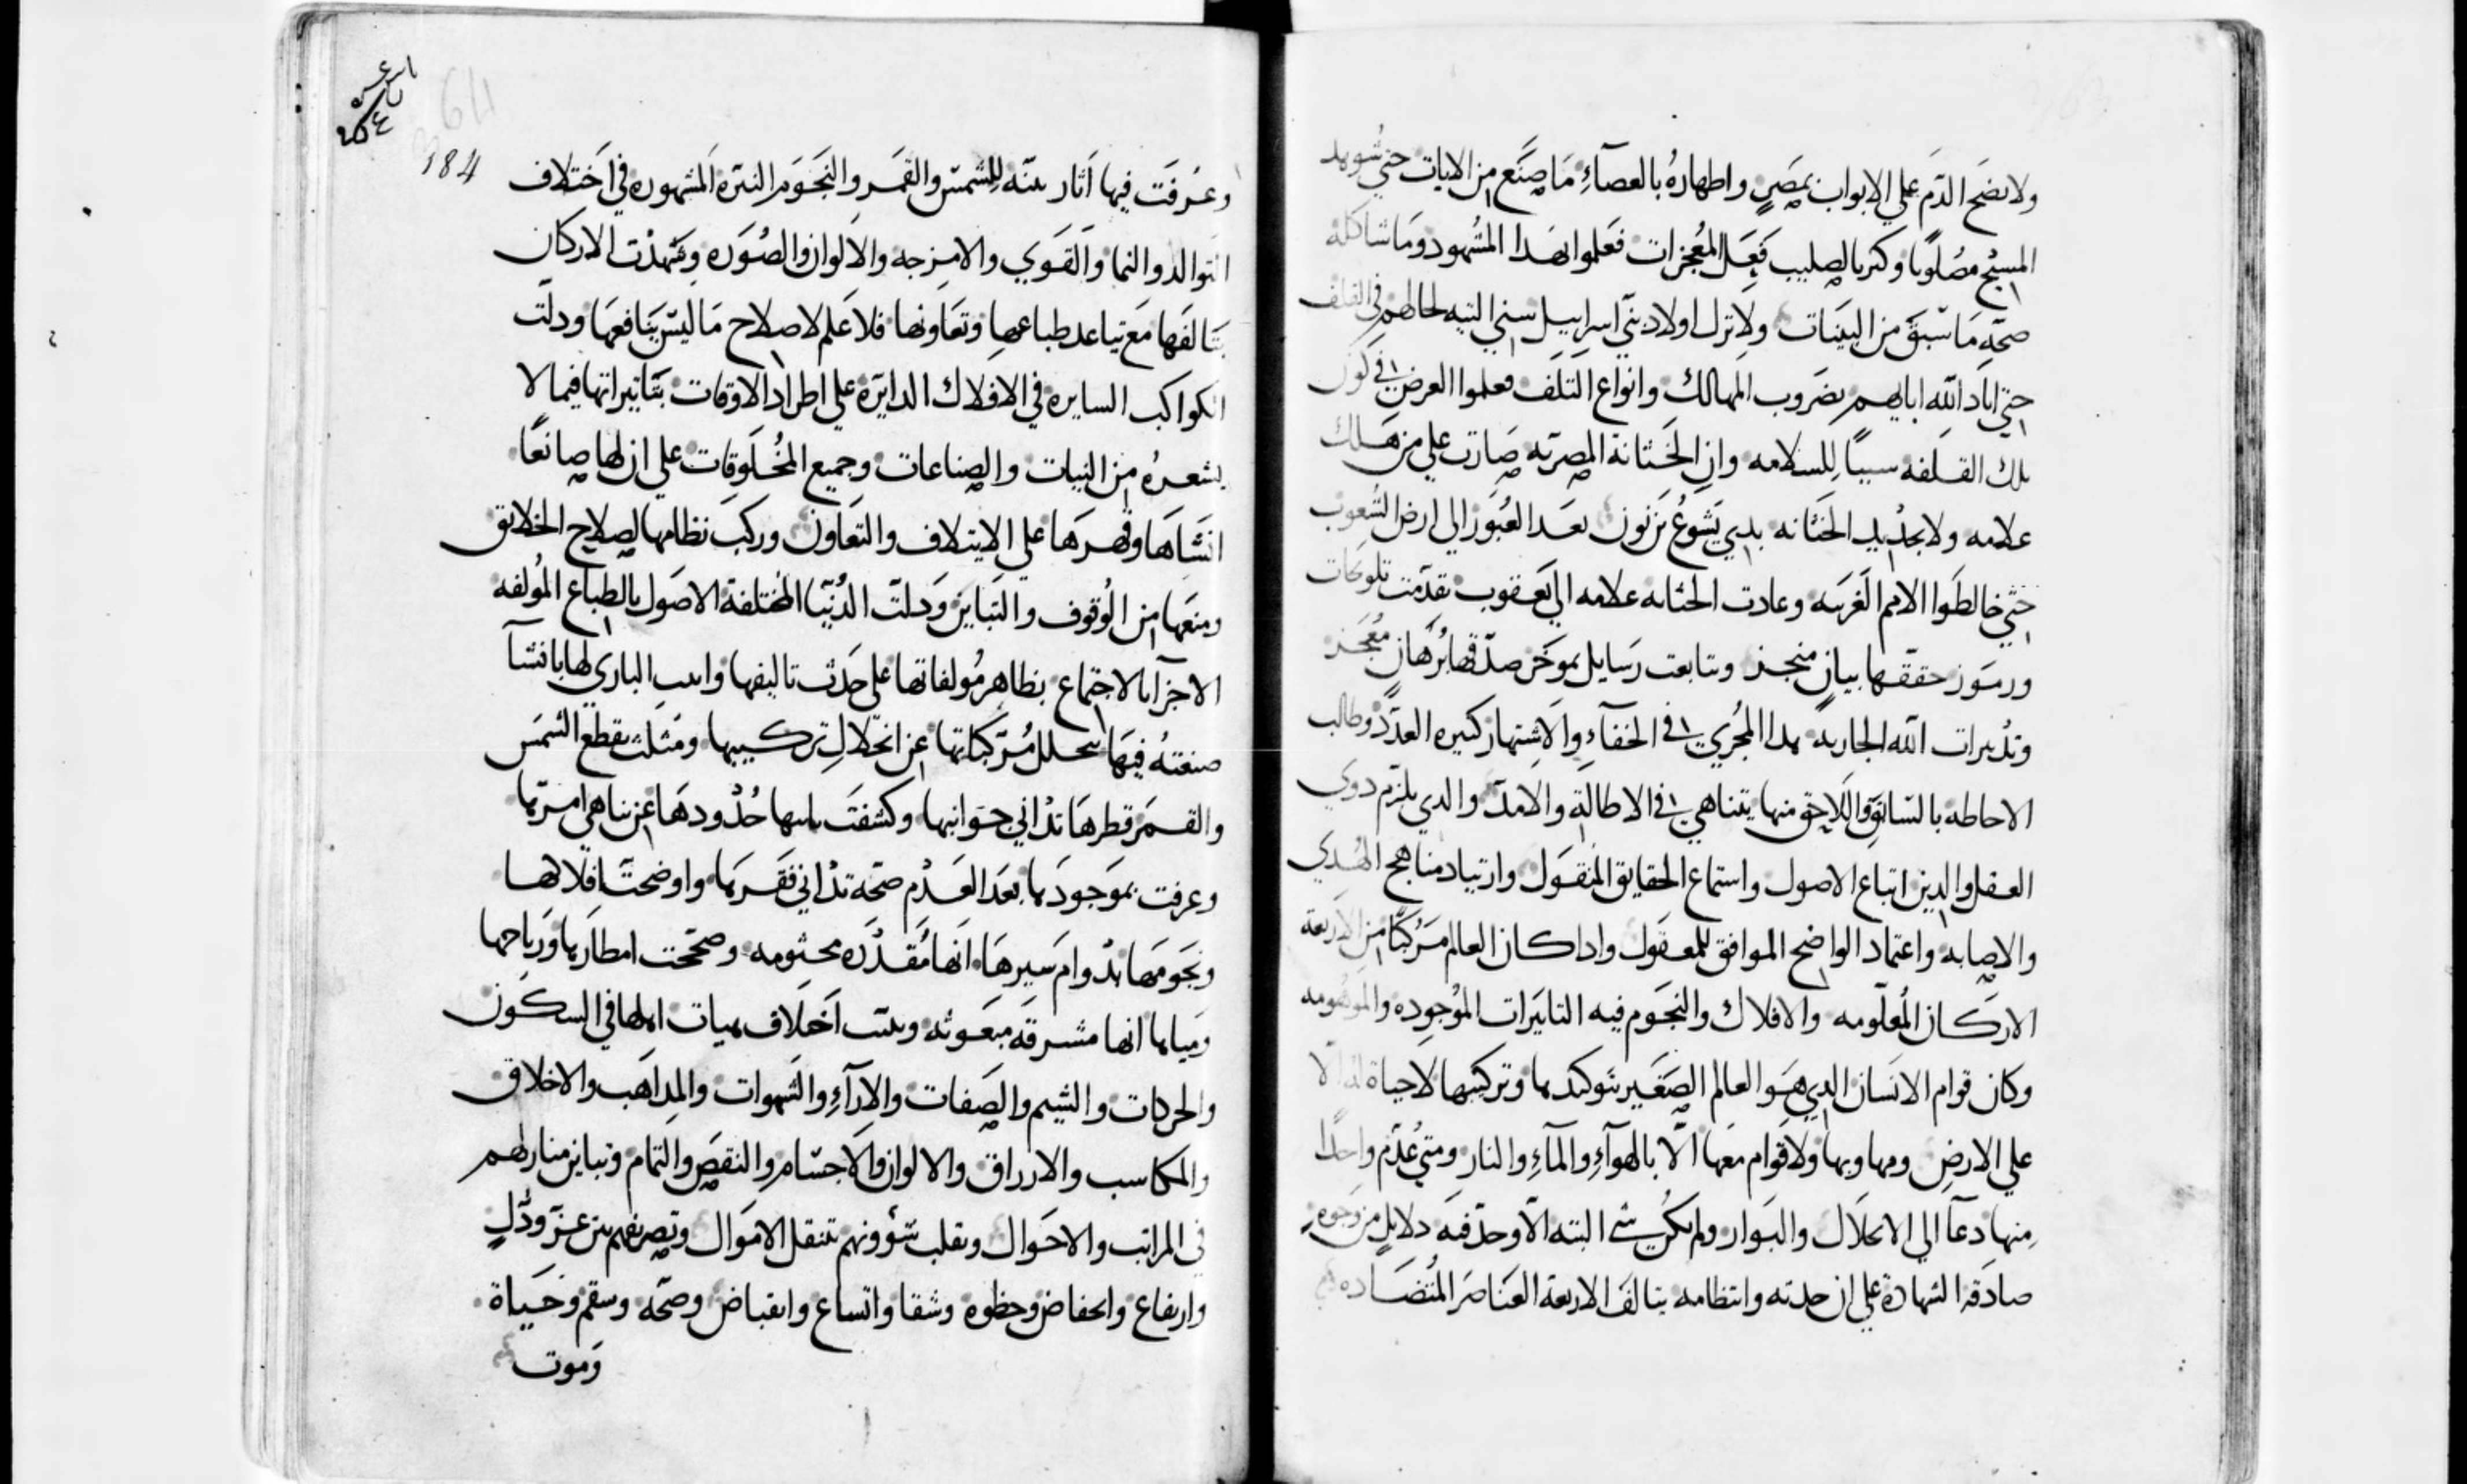 ولا نضح الدّم علي الابواب بمصرٍ واظهارهُ بالعصآءِ مَا صنَع من الايات حتي شوهد
المسيْح مصْلوبًا وكتر بالصليب فعِل المُعجزات فعَلموا بهَدا المشْهود ومَا شاكله
صحّةِ مَا سبَقَ من البينات ولا ترك اولاد بنّي اسراييل سني التيه لحالهم في القلف
حتي اباد الله ابايهم بضَروب المهالك وانواع التَلَف فعلموا العرض في كون
تلك القلفه سببًا للسلامه وان الختانة المصرّيه صَارت علي من هَلك
علامه ولا بجدْيد الختانه بيدي يَشوعُ بن نون بعَد العُبور الي ارض الشعوب
حتي خالطَوا الامم الغَريبَه وعادت الختانه علامه الي يَعقوب تقدّمت تلويحَات
ورموز حققها بيانٍ منجز وتتابعت رَسايل بموخَر صدّقها بُرهَان مُعْجَز
وتدْبيرات الله الجاريه هدا المجْري في الخفآءِ والاشتهار كتيره العدَّد وطالب
الاحاطه بالسّابق واللاحق منها يتناهي في الاطالةِ والامَدّ والدي يلزم دوي
العقل والدين اتباع الاصول واستماع الحقايق المنقول وارتياد مناهج الهُدي
والاصابه واعتماد الواضح الموافق للمعقول وادا كان العالم مَرَكبًا من الاربعة
الاركان المُعلومه والافلاك والنجوم فيه التاثيَرات المُوجوده والموهومه
وكان قوام الانسَان الدي هَوَ العالم الصغَير بتوكيدها وتركيبها لاحياة له الّا
علي الارض ومهاويها ولا قوام معَها الّا بالهوآءِ والمآءِ والنار ومتي عُدّم واحدًا
منها دعَآ الي الانحلال والبَوار ولم يكن شي البته الّا وجدّ فيه دلايلٍ من وجوهٍ
صادقة الشهادة علي ان حدته وانتظامه بتالف الاربعة العنَاصَر المُتضَاده
184
وعَرفَت فيها اَثار بينّه للِشمسّ والقمَر والنجَومَ النيّره المَشهوره في اختلاف
التوالد والنما والقَوي والامزجه والالوان والصُوَره وشَهدْت الاركان
بتَالفَها مَع تباعد طباعها وتعَاونها فلا عَلم لاصلاح مَا ليسَ بَنافعهَا ودلّت
الكواكب السايره في الافلاك الدايرَة علي اطراد الاوقات بتَاثيراتها فيما لا
يشعرهُ من النبات والصناعات وجميع المخْلَوقات علي ان لها صانعًا
انشَاهَا وقهرَهَا علي الايتلاف والتعَاون وركبَ نظامها لصلاح الخلايق
ومنعَها من الُوقوف والتبَاين وَدلتّ الدُنيّا المختلفة الاصَول بالطباع المُولفه
الاجزآ بالاجتماع بظاهر مُولفاتها علي حَدث تاليفها وادب الباري لها بانشآ
صنعتهُ فيهَا بتحلل مُرّكباتها عن انحّلالِ تركيبها ومَثلت بقطع الشمَس
والقمَر قطرهَا تدَاني جَوانبها وكشفتَ حُدْودهَا عن تناهي امرّها
وعرفت بموَجودَها بعَد العَدْم صحّه تدْاني فقَرها واوضحتَ افلاكها
ونجَومهَا بدْوامَ سَيرهَا اَنهَا مُقدْرَه محتومه وصحّحت امطارَها وَرياحها
ومَياها انها مشرقَه مبعَوثه وبينّت اَختلاف هيات اهلها في السكون
والحركات والشيم والصَفات والارآءِ والشهوات والمداهَب والاخلاق
والمكاسب والارزاق والالوان والاجسَام والنقصَ والتمام وتباين منازلهم
في المراتب والاحَوال وتقلب شؤونهم بتنقل الامَوال وتصريفهم بين عزّ ودُلٍ
وارتفاع وانخفاض وحظوه وشقا واتساع وانقباض وصحّه وسقم وحَياة
وَموت